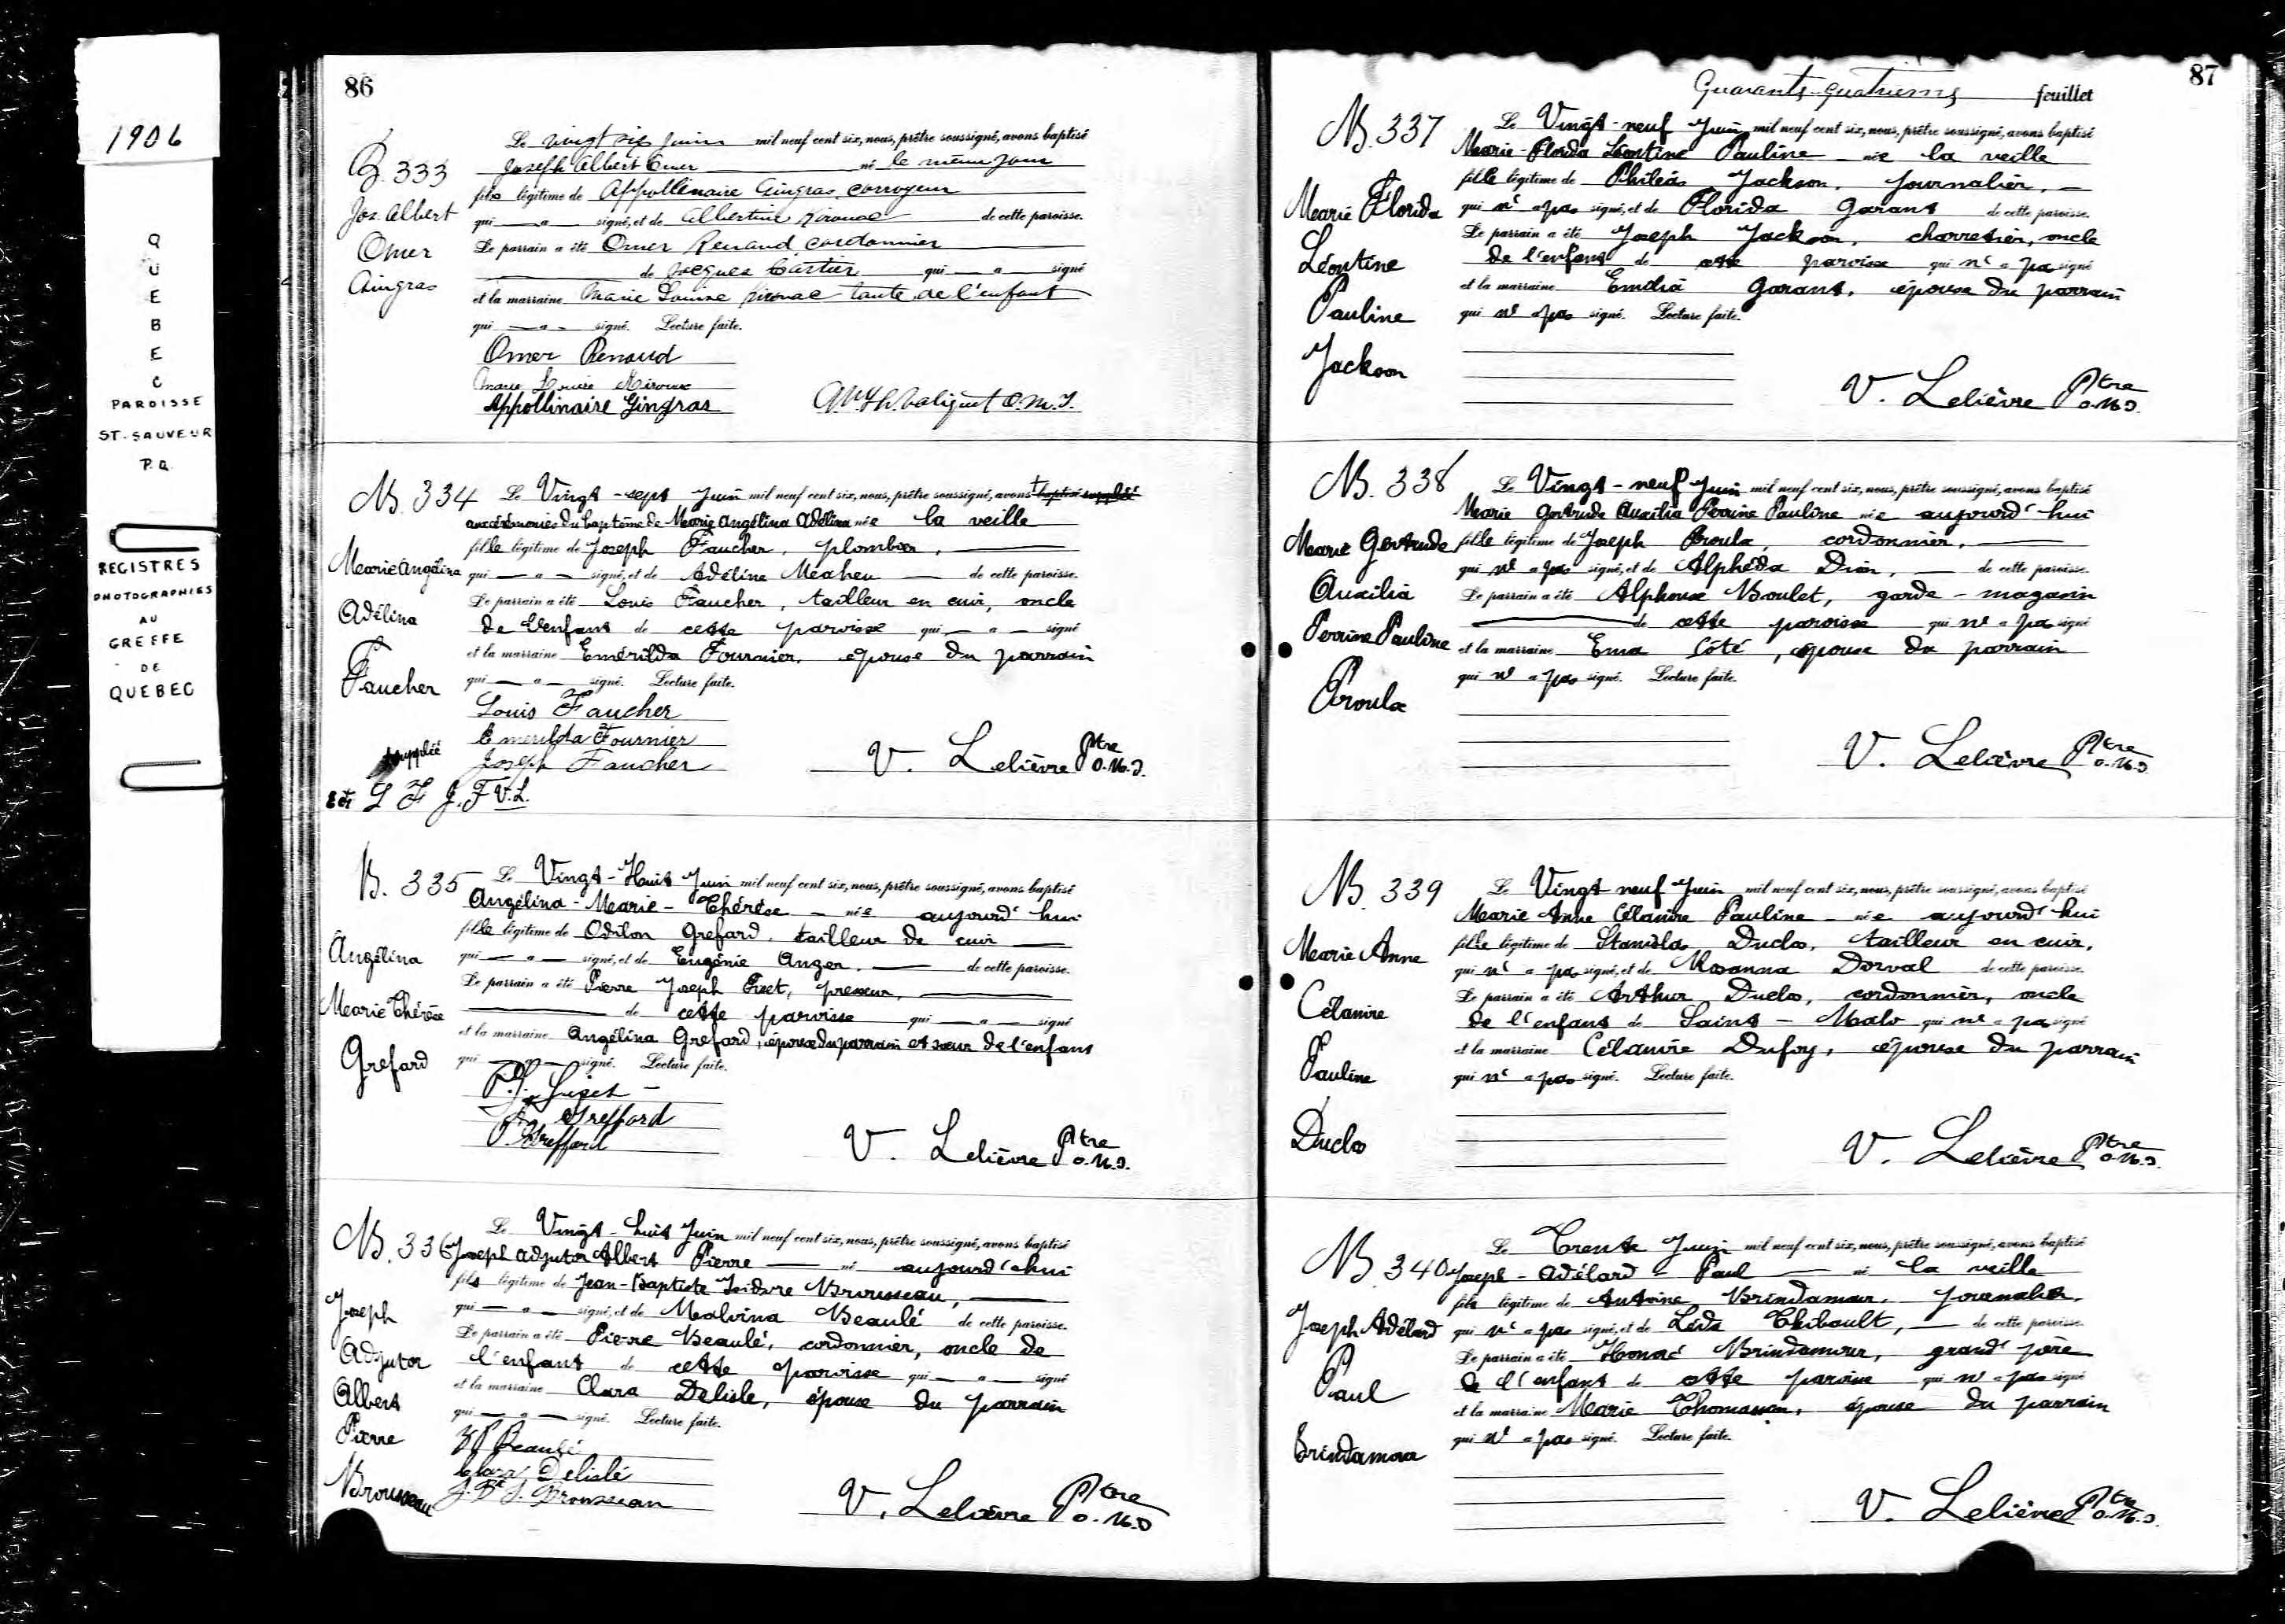 1906
QUEBEC
PAROISSE
ST-SAUVEUR
P.Q.
REGISTRES
PHOTOGRAPHIES
AU
GREFFE
DE
QUEBEC
86
B. 333
Jos. Albert
Omer
Gingras
Le vingt six Juin mil neuf cent six, nous, prêtre soussigné, avons baptisé
Joseph Albert Omer né le même jour
fils légitime de Appollinaire Gingras, corroyeur
qui — a — signé, et de Albertine Kirouac de cette paroisse.
Le parrain a été Omer Renaud cordonnier
de Jacques Cartier qui — a — signé
et la marraine Marie Louise Kirouac tante de l'enfant
qui — a — signé. Lecture faite.
Omer Renaud
Marie Louise Kirouac
Appollinaire Gingras
O.M.I.
B. 334
Marie Angélina
Adélina
Faucher
Le Vingt-sept Juin mil neuf cent six, nous, prêtre soussigné, avons + baptisé suppléé
aux cérémonies du baptême de Marie Angélina Adélina née la veille
fille légitime de Joseph Faucher, plombier,
qui — a — signé, et de Adéline Maheu — de cette paroisse.
Le parrain a été Louis Faucher, tailleur en cuir, oncle
de l'enfant de cette paroisse qui — a — signé
et la marraine Emérilda Fournier, épouse du parrain
qui — a — signé. Lecture faite.
Louis Faucher
Emerilda Fournier
Joseph Faucher
V. Lelièvre Ptre
O.M.I.
suppléé
L F J. F V.L.
B. 335
Angélina
Marie Thérèse
Grefard
Le Vingt-Huit Juin mil neuf cent six, nous, prêtre soussigné, avons baptisé
Angélina-Marie-Thérèse — née aujourd'hui
fille légitime de Odilon Grefard, tailleur de cuir
qui — a — signé, et de Eugénie Anger, — de cette paroisse.
Le parrain a été Pierre Joseph, presseur,
de cette paroisse qui — a — signé
et la marraine Angélina Grefard, épouse du parrain et sœur de l'enfant
qui — a — signé. Lecture faite.
Greffard
Greffard
V. Lelièvre Ptre
O.M.I.
B. 336
Joseph
Adjutor
Albert
Pierre
Brousseau
Le Vingt-huit Juin mil neuf cent six, nous, prêtre soussigné, avons baptisé
Joseph Adjutor Albert Pierre — né aujourd'hui
fils légitime de Jean-Baptiste Isidore Brousseau,
qui — a — signé, et de Malvina Beaulé de cette paroisse.
Le parrain a été Pierre Beaulé, cordonnier, oncle de
l'enfant de cette paroisse qui — a — signé
et la marraine Clara Delisle, épouse du parrain
qui — a — signé. Lecture faite.
Beaulé
Clara Delisle
J. Bte I. Brousseau
V. Lelièvre Ptre
O.M.I.
87
Quarante-quatrième feuillet
B. 337
Marie Florida
Léontine
Pauline
Jackson
Le Vingt-neuf Juin mil neuf cent six, nous, prêtre soussigné, avons baptisé
Marie-Florida Léontine Pauline — née la veille
fille légitime de Philéas Jackson, journalier, —
qui n'a pas signé, et de Florida Garant de cette paroisse.
Le parrain a été Joseph Jackson, charretier, oncle
de l'enfant de cette paroisse qui n'a pas signé
et la marraine Emélia Garant, épouse du parrain
qui n'a pas signé. Lecture faite.
V. Lelièvre Ptre
O.M.I.
B. 338
Marie Gertrude
Auxilia
Perrine Pauline
Proulx
Le Vingt-neuf Juin mil neuf cent six, nous, prêtre soussigné, avons baptisé
Marie Gertrude Auxilia Perrine Pauline née aujourd'hui
fille légitime de Joseph Proulx, cordonnier,
qui n'a pas signé, et de Alphéda Dion, — de cette paroisse.
Le parrain a été Alphonse Boulet, garde-magasin
de cette paroisse qui n'a pas signé
et la marraine Ema Côté, épouse du parrain
qui n'a pas signé. Lecture faite.
V. Lelièvre Ptre
O.M.I.
B. 339
Marie Anne
Célanire
Pauline
Duclos
Le Vingt neuf Juin mil neuf cent six, nous, prêtre soussigné, avons baptisé
Marie Anne Célanire Pauline — née aujourd'hui
fille légitime de Stanislas Duclos, tailleur en cuir,
qui n'a pas signé, et de Rosanna Dorval de cette paroisse.
Le parrain a été Arthur Duclos, cordonnier, oncle
de l'enfant de Saint-Malo qui n'a pas signé
et la marraine Célanire Dufoy, épouse du parrain
qui n'a pas signé. Lecture faite.
V. Lelièvre Ptre
O.M.I.
B. 340
Joseph Adélard
Paul
Brindamour
Le Trente Juin mil neuf cent six, nous, prêtre soussigné, avons baptisé
Joseph-Adélard-Paul — né la veille
fils légitime de Antoine Brindamour, journalier,
qui n'a pas signé, et de Léda Thibault, — de cette paroisse.
Le parrain a été Honoré Brindamour, grand'père
de l'enfant de cette paroisse qui n'a pas signé
et la marraine Marie Thomassin, épouse du parrain
qui n'a pas signé. Lecture faite.
V. Lelièvre Ptre
O.M.I.